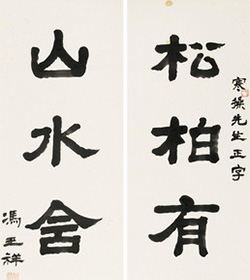 松柏有
寒操先生正字
山水含
馮玉祥